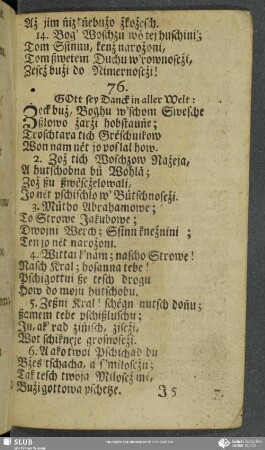 Až jim ńizkńebużo żkożesch.
14. Bog' Woschzu wö tej huschiniz
Tom Sſinnu, kenż narożoni,
Tom ßwetem Duchu w'rownosczi,
Zesez bużi do Nimernosczi!
76.
GOtt sey Danck in aller Welt:
Zeck buż, Boghu w'schom Swesche
Zslowo żarżi hobstaune;
Troschtara tich Greschnikow
Won nam nět jo poslal how.
2. Zoż tich Woschzow Nażeja,
A hutschobna bü Wohla;
Zoż ßu ßweschzelowali,
Jo nět pschischlo w' Bütschnosczi.
3. Mütbo Abrahamowe;
To Strowe Jakubowe;
Dwojni Werch; Sſinn kneżnini;
Ten jo nět narożoni.
4. Wittaj k'nam; nascho Strowe!
Nasch Kral; hosanna tebe!
Pschigottui ße tesch drogu
How do moju hutschobu.
5. Zeßni Kral! schégn nutsch doñu;
ßemem tebe pschißluschu;
Ju, ak' rad zińisch, zisczi,
Wot schikneje grosnosczi.
6. Ako twoi Pschichad bu
Bżes tschacha, a s'miloscżu;
Tak tesch twoja Miloscż me,
Bużi gottowa pschetze.
J 5
7.
SLUB